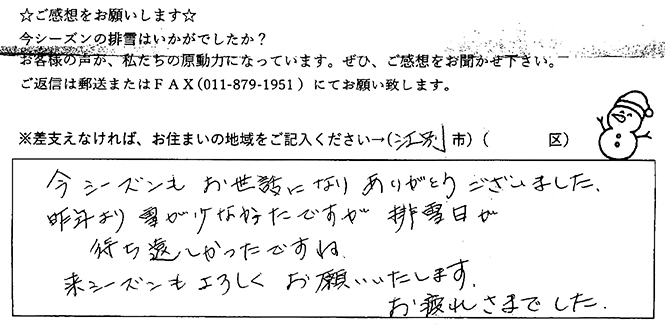 ☆ご感想をお願いします☆
今シーズンの排雪はいかがでしたか？
お客様の声が、私たちの原動力になっています。ぜひ、ご感想をお聞かせ下さい。
ご返信は郵送またはＦＡＸ（011-879-1951）にてお願い致します。
※差支えなければ、お住まいの地域をご記入ください→（江別市）（　　　区）
今シーズンも お世話になり ありがとうございました.
昨年より 雪が少なかったですが 排雪日が
待ち遠しかったですね.
来シーズンもよろしく お願いいたします.
お疲れさまでした.